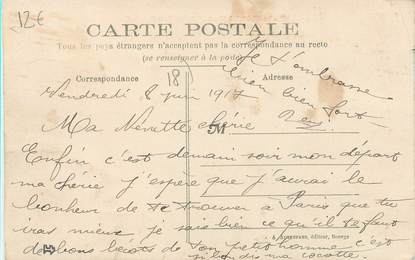 12€
CARTE POSTALE
Tous les pays étrangers n'acceptent pas la correspondance au recto
(se renseigner à la poste)
Correspondance
Adresse
181
Je t'embrasse
bien bien fort
Vendredi 8 juin 1917
Ma Nenette chérie
M
Enfin c'est demain soir mon départ
ma chérie j'espère que j'aurai le
bonheur de te trouver à Paris que tu
iras mieux je sais bien ce qu'il te faut
de bons bécots de ton petit homme c'est
si bon dis ma cocotte
éditeur, Bourges